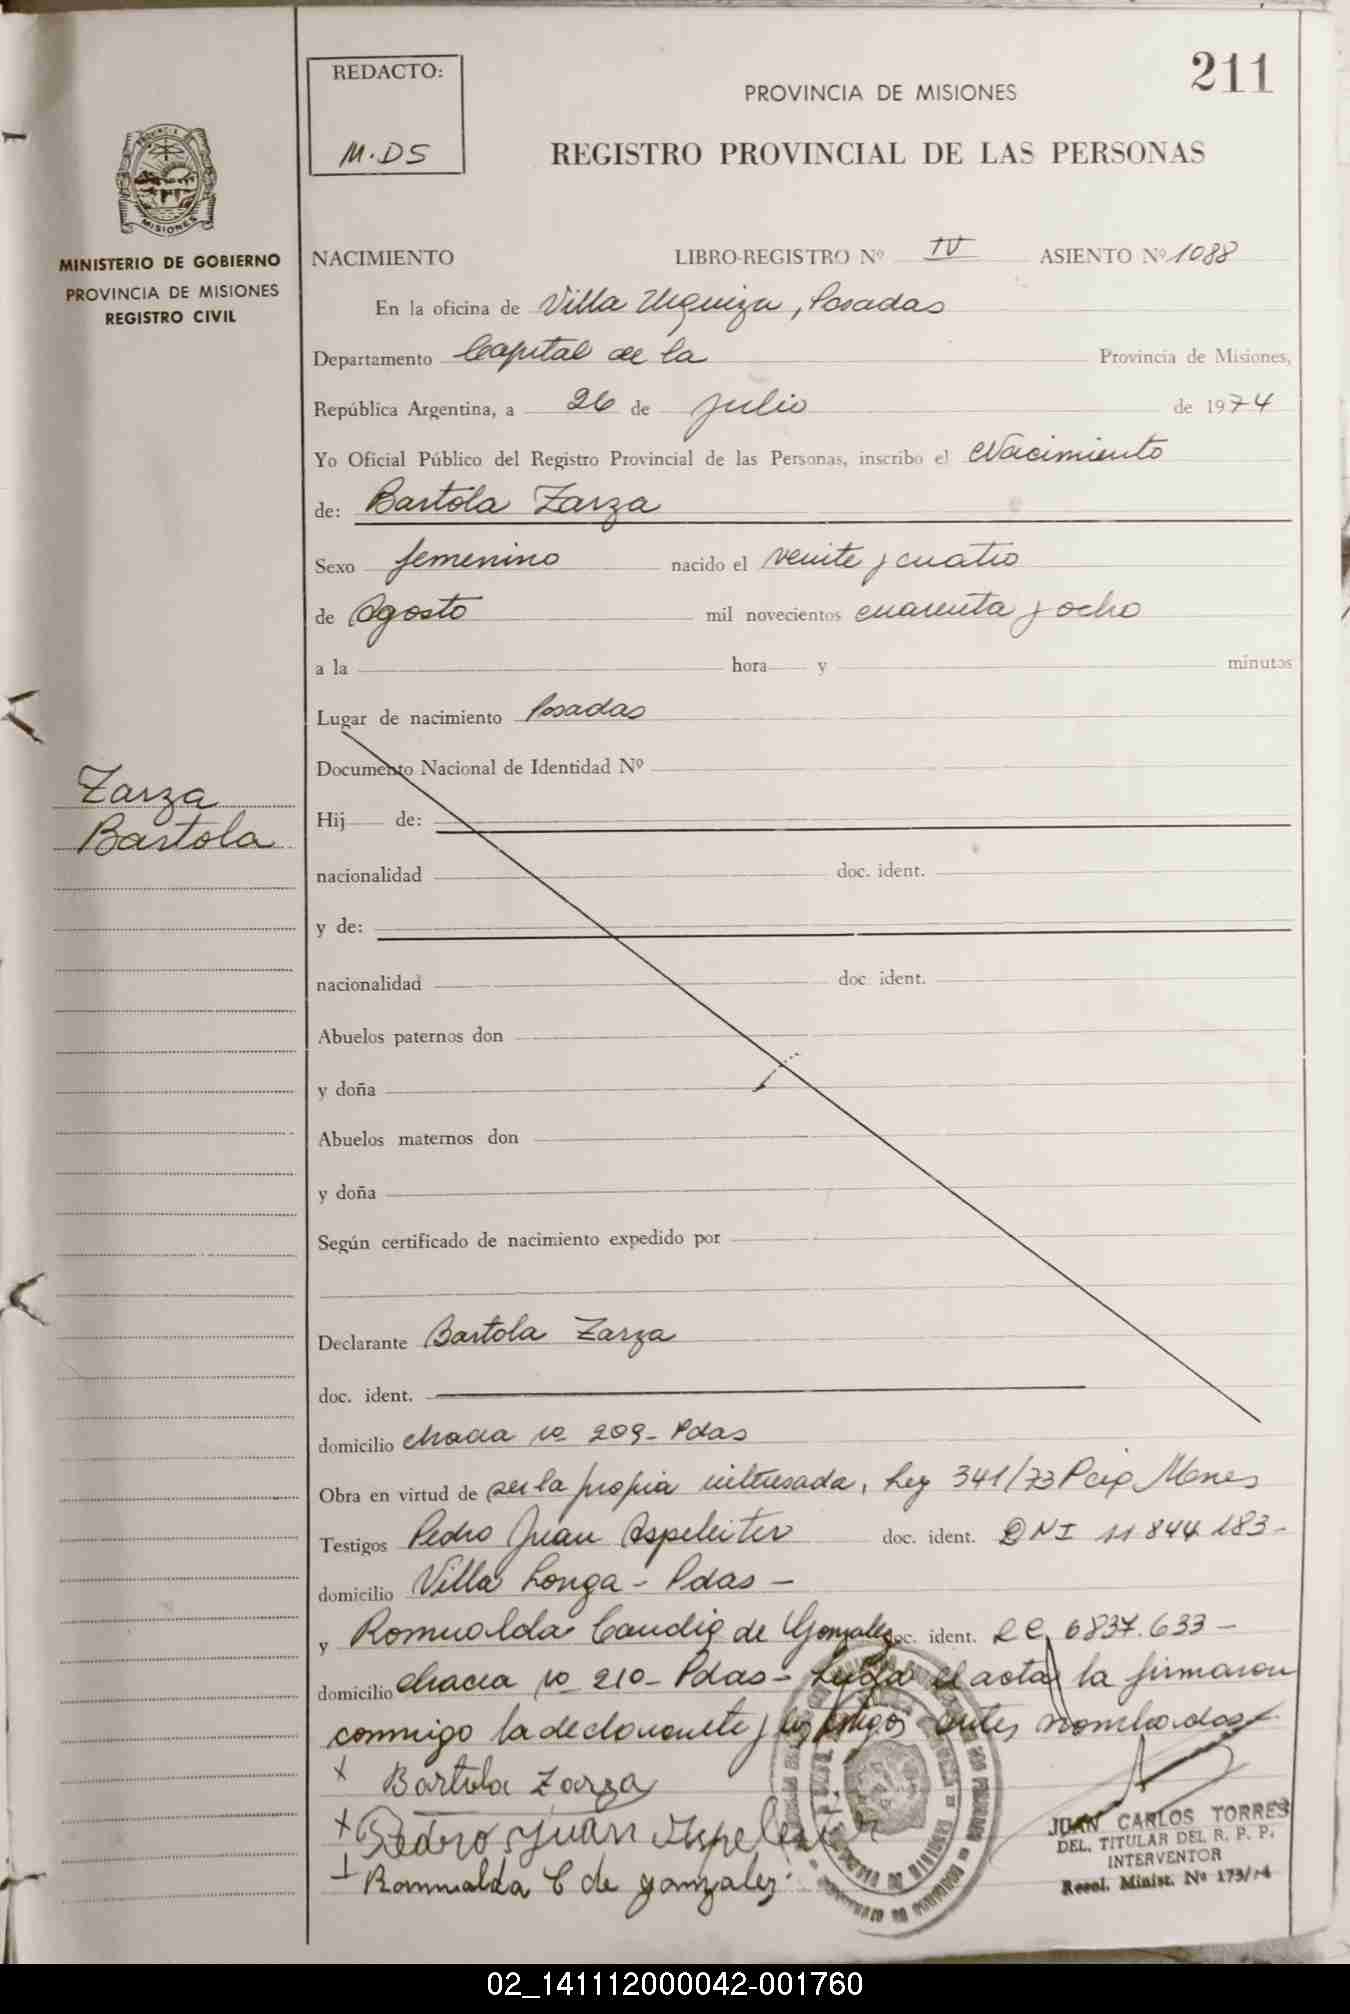 211
REDACTO:
M.DS
PROVINCIA DE MISIONES
REGISTRO PROVINCIAL DE LAS PERSONAS
MISIONES
MINISTERIO DE GOBIERNO
PROVINCIA DE MISIONES
REGISTRO CIVIL
NACIMIENTO LIBRO-REGISTRO Nº IV ASIENTO Nº 1088
En la oficina de Villa Urquiza, Posadas
Departamento Capital de la Provincia de Misiones,
República Argentina, a 26 de julio de 1974
Yo Oficial Público del Registro Provincial de las Personas, inscribo el Nacimiento
de: Bartola Zarza
Sexo femenino nacido el veinte y cuatro
de Agosto mil novecientos cuarenta y ocho
a la hora y minutos
Lugar de nacimiento Posadas
Zarza
Bartola
Documento Nacional de Identidad Nº
Hij de:
nacionalidad doc. ident.
y de:
nacionalidad doc. ident.
Abuelos paternos don
y doña
Abuelos maternos don
y doña
Según certificado de nacimiento expedido por
Declarante Bartola Zarza
doc. ident.
domicilio chacra no 209- Pdas
Obra en virtud de ser la propia interesada, Ley 341/73 Pcia Mnes
Testigos Pedro Juan doc. ident. DNI 11844183-
domicilio Villa Longa - Pdas -
y Romualda Candia de Gonzalez doc. ident. LC 6837.633-
domicilio chacra no 210- Pdas- Leída el acta la firmaron
conmigo la declarante y los testigos antes nombrados-
x Bartola Zarza
x Pedro Juan
Romualda C de gonzalez
JUAN CARLOS TORRES
DEL. TITULAR DEL R. P. P.
INTERVENTOR
Resol. Minist. Nº 173/74
02_141112000042-001760